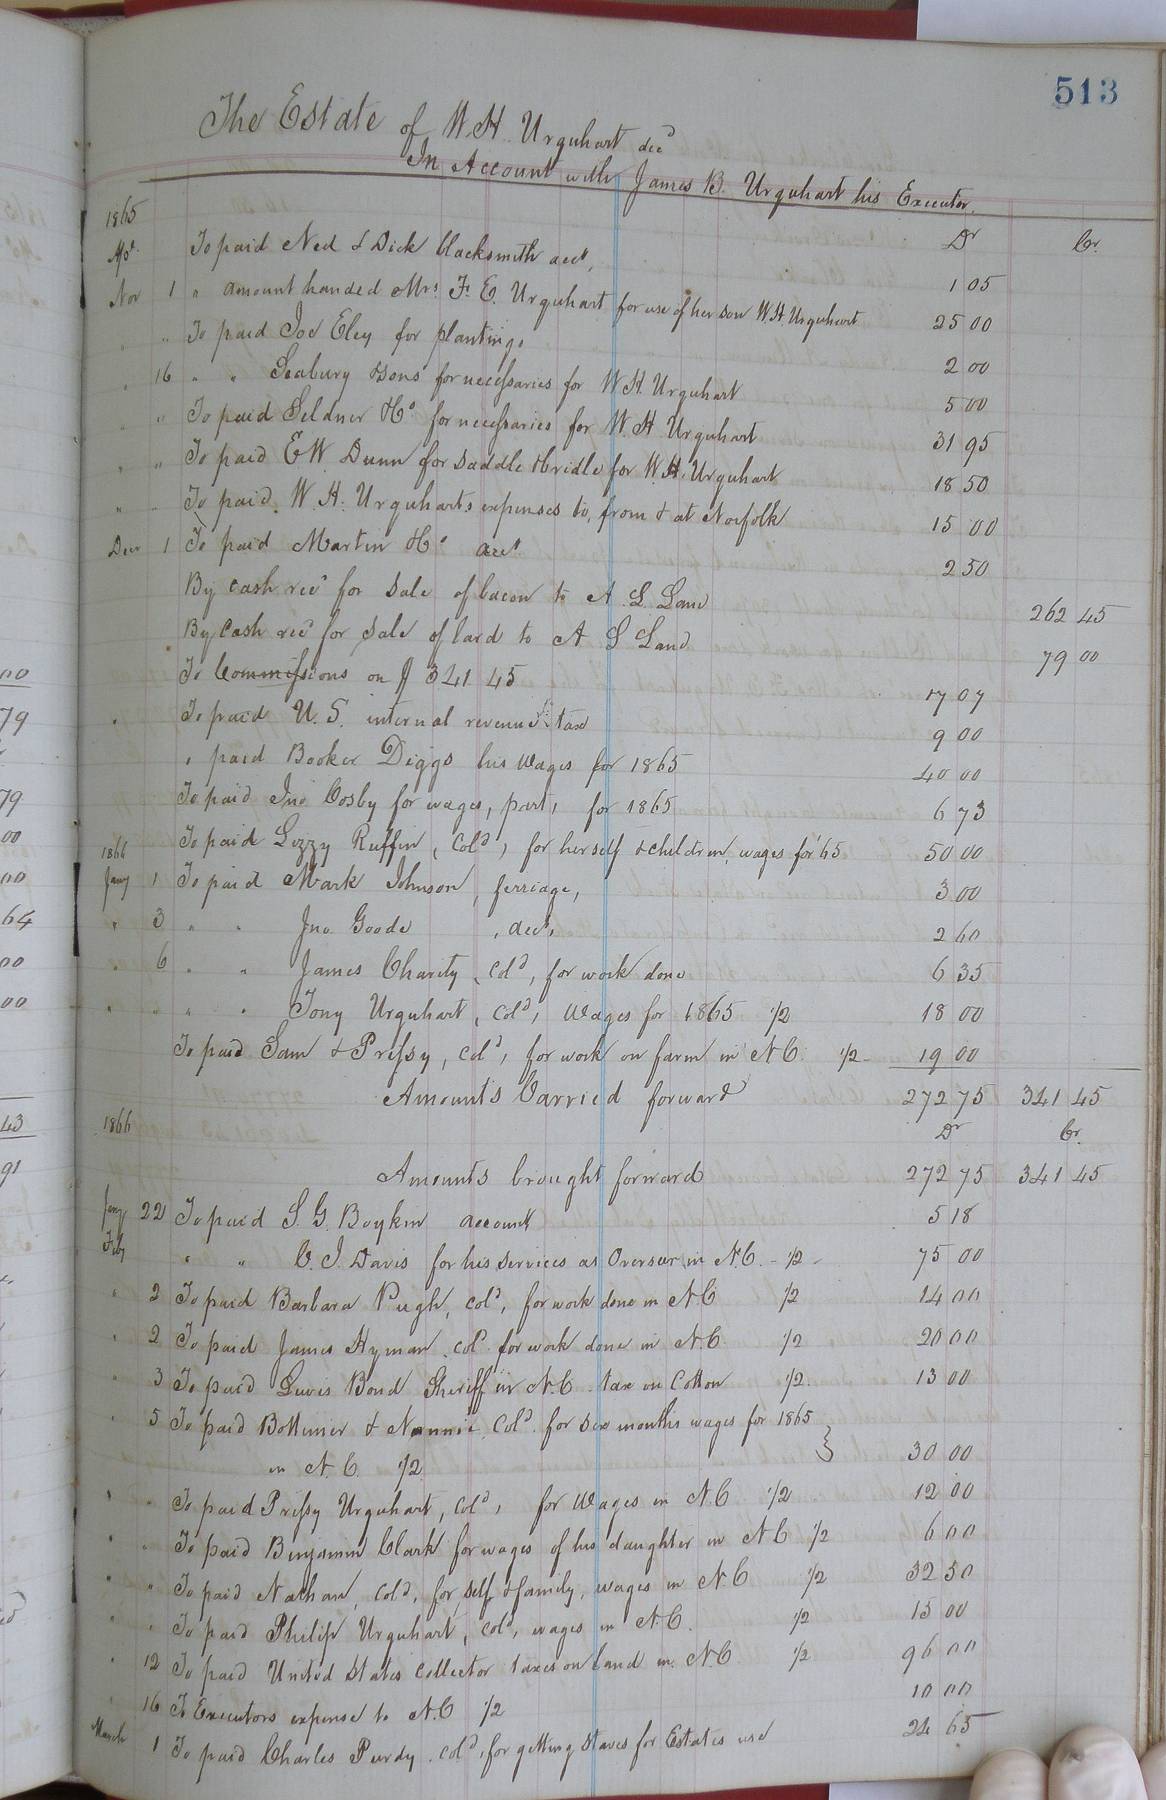 513
The Estate of W. H. Urquhart decd
In Account with James B. Urquhart his Executor.
1865 Dr Cr.
To paid Ned & Dick blacksmith acct, 1 05
Nov 1 " amount handed Mrs. F. E. Urquhart for use of her son W. H. Urquhart 25 00
" " To paid Joe Eley for planting, 2 00
" 16 " " Seabury & sons for necessaries for W. H. Urquhart 5 00
" To paid Seldner & Co for necessaries for W. H Urquhart 31 95
" " To paid E W. Dunn for saddle & bridle for W. H. Urquhart 18 50
" " To paid W. H. Urquharts expenses to, from & at Norfolk 15 00
Decr 1 To paid Martin & Co acct 2 50
By cash recd for sale of bacon to A. L. Land 262 45
By Cash recd for sale of lard to A L Land 79 00
To Commissions on $ 341. 45 17 07
To paid U. S. internal revenue tax 9 00
" paid Booker Diggs his wages for 1865 40 00
To paid Jno Cosby for wages, part, for 1865 6 73
To paid Lizzy Ruffin, Cold, for herself & children, wages for '65 50 00
1866
Jany 1 To paid Mark Johnson, ferriage, 3 00
" 3 " " Jno. Goode , acct, 2 60
" 6 " " James Charity, Cold, for work done 6 35
" " " " Tony Urquhart, Cold, wages for 1865 1/2 18 00
To paid Sam & Prissy, Cold, for work on farm in N C. 1/2 19 00
Amounts Carried forward 272 75 341 45
1866 Dr Cr.
Amounts brought forward 272 75 341 45
Jany 22 To paid S. G. Boykin account 5 18
Feby " " C. J. Davis for his services as Overseer in N. C. - 1/2 - 75 00
" 2 To paid Barbara Pugh, Cold, for work done in N. C 1/2 14 00
" 2 To paid James Hyman, Cold for work done in N. C. 1/2 20 00
" 3 To paid Lewis Bond Sheriff in N. C. tax on Cotton 1/2. 13 00
" 5 To paid & Nannie, Cold. for six months wages for 1865
in N. C. 1/2 30 00
" " To paid Prissy Urquhart, Cold, for wages in N. C 1/2 12 00
" " To paid Benjamin Clark for wages of his daughter in N C 1/2 6 00
" " To paid Nathan, Cold, for self & family, wages in N. C 1/2 32 50
" " To paid Philip Urquhart, Cold, wages in N. C. 1/2 15 00
" 12 To paid United States Collector taxes on land in N. C 1/2 96 00
" 16 To Executors expense to N. C 1/2 10 00
March 1 To paid Charles Purdy, Cold, for getting staves for Estates use 24 65